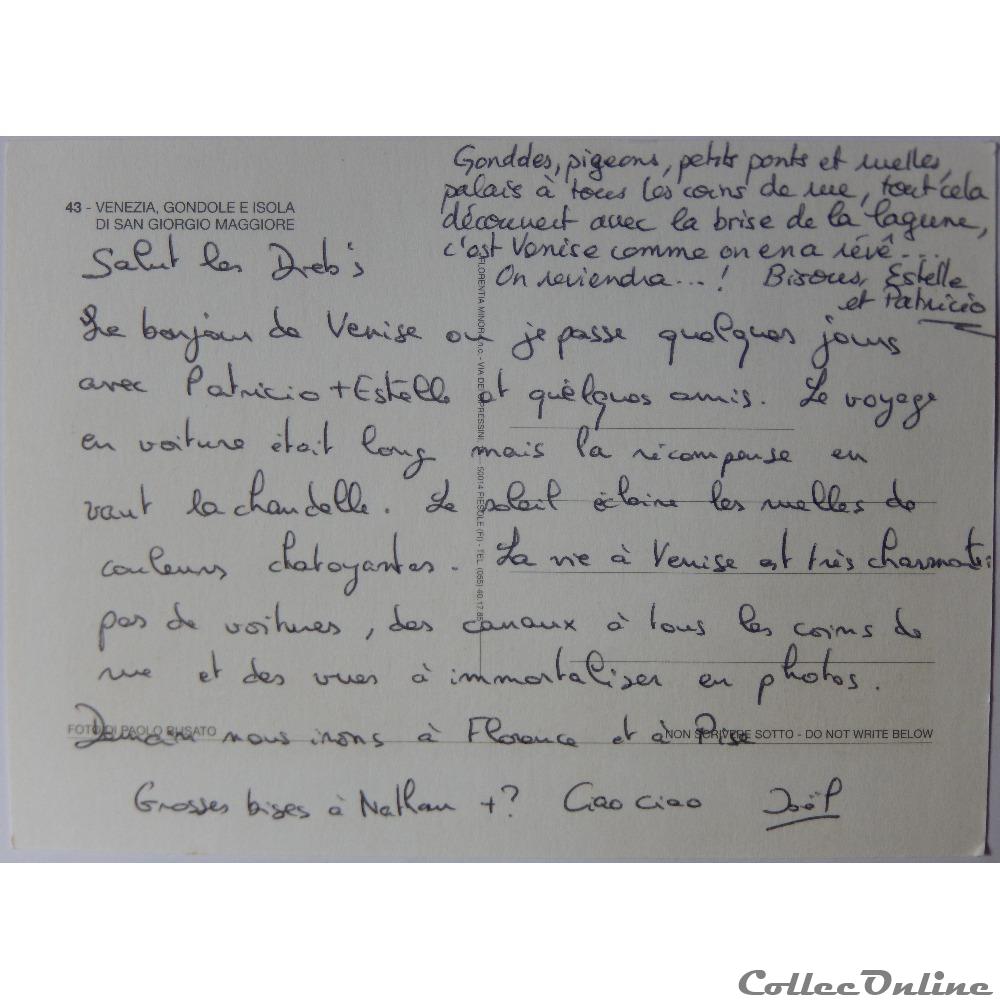 43 - VENEZIA, GONDOLE E ISOLA
DI SAN GIORGIO MAGGIORE
Gonddes, pigeons, petits ponts et ruelles,
palais à tous les coins de rue, tout cela
découvert avec la brise de la lagune,
c'est Venise comme on en a rêvé...
On reviendra...! Bisous, Estelle
et Patricio
Salut les Dreb's
Le bonjour de Venise ou je passe quelques jours
avec Patricio + Estelle et quelques amis. Le voyage
en voiture était long mais la récompense en
vaut la chandelle. Le soleil éclaire les ruelles de
couleurs chatoyantes. La vie à Venise est très charmante:
pas de voitures, des canaux à tous les coins de
rue et des vues à immortaliser en photos.
Demain nous irons à Florence et à Pise
Grosses bises à Nathan +? Ciao ciao Joël
FOTO DI PAOLO BUSATO
NON SCRIVERE SOTTO - DO NOT WRITE BELOW
FLORENTIA MINOR s.n.c. - VIA DEI 50014 FIESOLE (FI) - TEL. (055)
CollecOnline